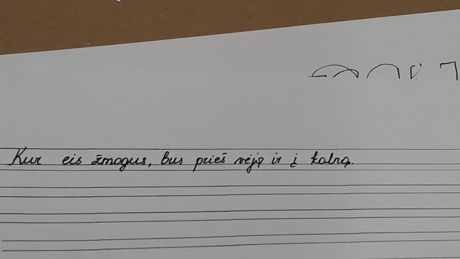 Kur eis žmogus, bus prieš vėją ir į kalną.